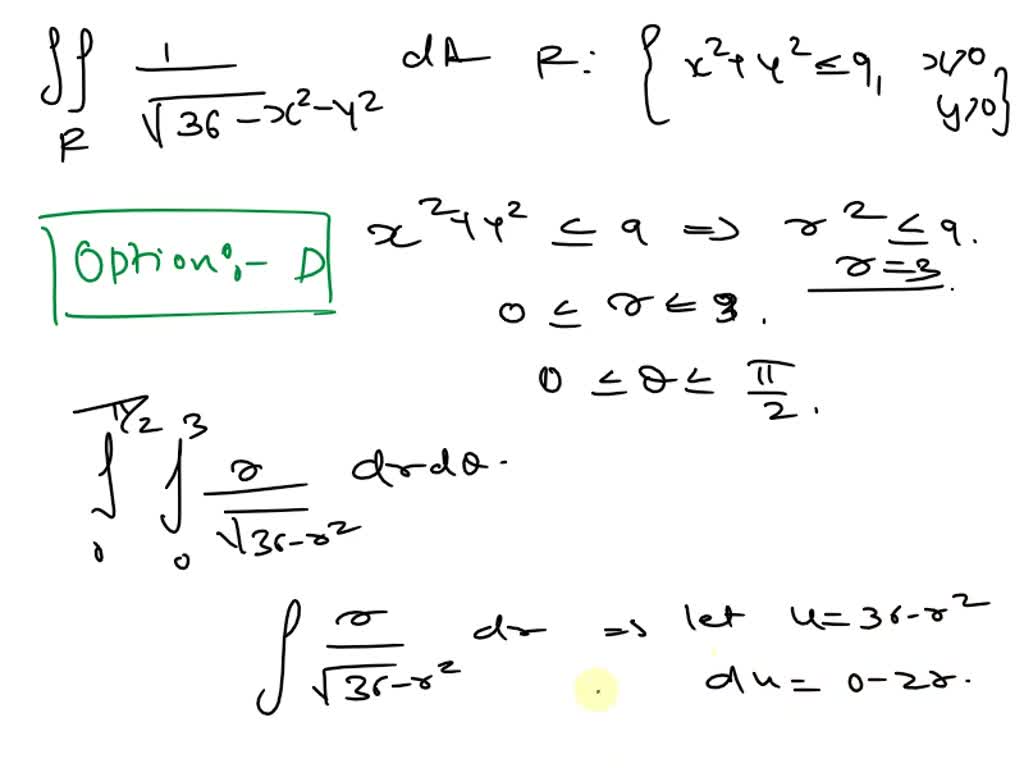 ∬_R 1/√(36-x²-y²) dA R: { x²+y² ≤ 9, x>0 y>0 }
Option:- D
x²+y² ≤ 9 => r² ≤ 9.
r=3.
0 ≤ r ≤ 3.
0 ≤ θ ≤ π/2.
∫_0^{π/2} ∫_0^3 r/√(36-r²) dr dθ.
∫ r/√(36-r²) dr => let u=36-r²
du= 0-2r.